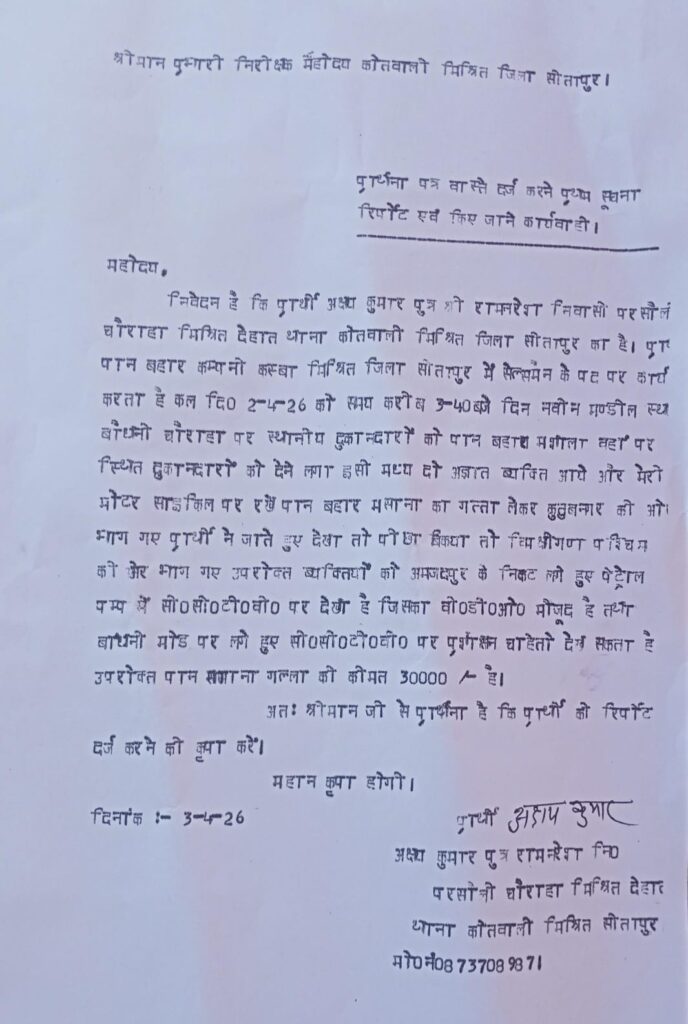 श्रीमान प्रभारी निरीक्षक महोदय कोतवाली मिश्रित जिला सीतापुर।
प्रार्थना पत्र वास्ते दर्ज करने प्रथम सूचना
रिर्पोट एवं किए जाने कार्यवाही।
महोदय,
निवेदन है कि प्रार्थी अक्षय कुमार पुत्र श्री रामनरेश निवासी परसौली
चौराहा मिश्रित देहात थाना कोतवाली मिश्रित जिला सीतापुर का है।
पान बहार कम्पनी कस्बा मिश्रित जिला सीतापुर में सेल्समैन के पद पर कार्य
करता है कल दि0 2-4-26 को समय करीब 3-40 बजे दिन नवीन मण्डील
बाधनी चौराहा पर स्थानीय दुकानदारों को पान बहार मशाला वहां पर
स्थित दुकानदारों को देने लगा इसी मध्य दो अज्ञात ब्यक्ति आये और मेरी
मोटर साइकिल पर रखे पान बहार मसाना का गत्ता लेकर कुतुबनगर की
भाग गए प्रार्थी ने जाते हुए देखा तो पीछा किया तो विपक्षीगण पश्चिम
की ओर भाग गए उपरोक्त ब्यक्तियों को अमजदपुर के निकट लगे हुए पेट्रोल
पम्प में सी0सी0टी0वी0 पर देखा है जिसका वी0डी0ओ0 मौजूद है तथा
बाधनी मोड पर लगे हुए सी0सी0टी0वी0 पर प्रशासन चाहेतो देख सकता है
उपरोक्त पान मसाना गल्ला की कीमत 30000 /- है।
अतः श्रीमान जी से प्रार्थना है कि प्रार्थी की रिर्पोट
दर्ज करने की कृपा करें।
महान कृपा होगी।
दिनांक :- 3-4-26
प्रार्थी अक्षय कुमार
अक्षय कुमार पुत्र रामनरेश नि0
परसोली चौराहा मिश्रित देहात
थाना कोतवाली मिश्रित सीतापुर
मो0नं0 8737089871